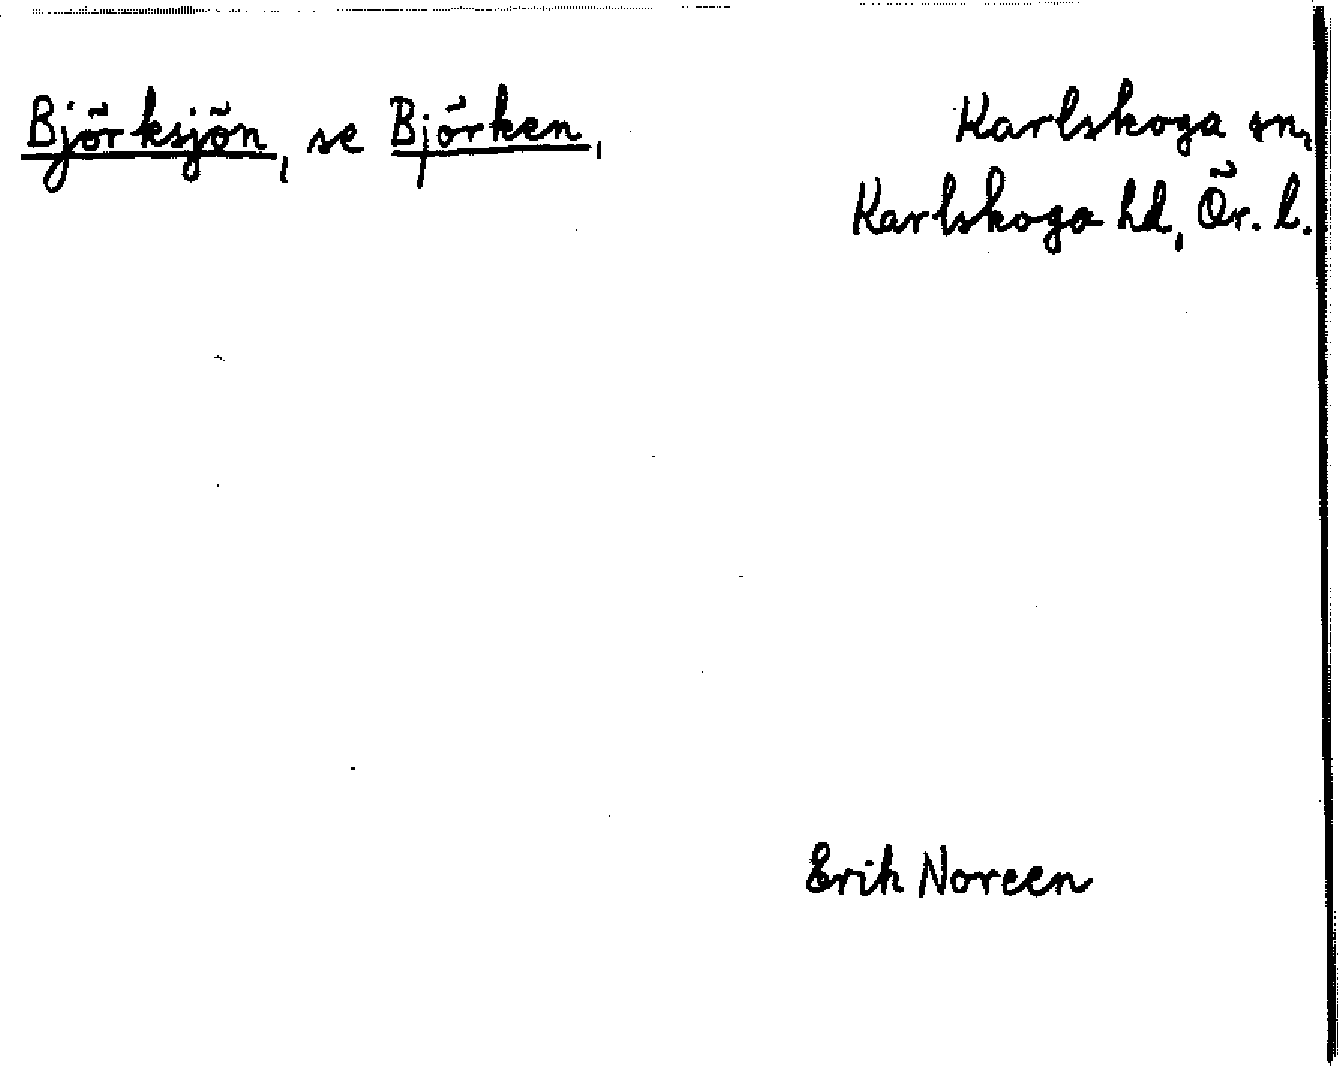 Björksjön, se Björken,
Karlskoga sn,
Karlskoga hd, Ör. l.
Erik Noreen